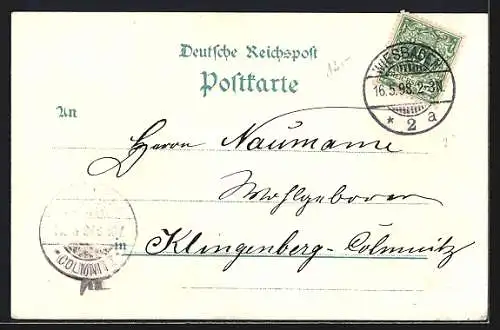 Deutsche Reichspost
Postkarte
WIESBADEN
16.5.98. 2-3N.
* 2 a
An
Herrn Naumann
Wohlgeboren
in Klingenberg-Colmnitz
COLMNITZ